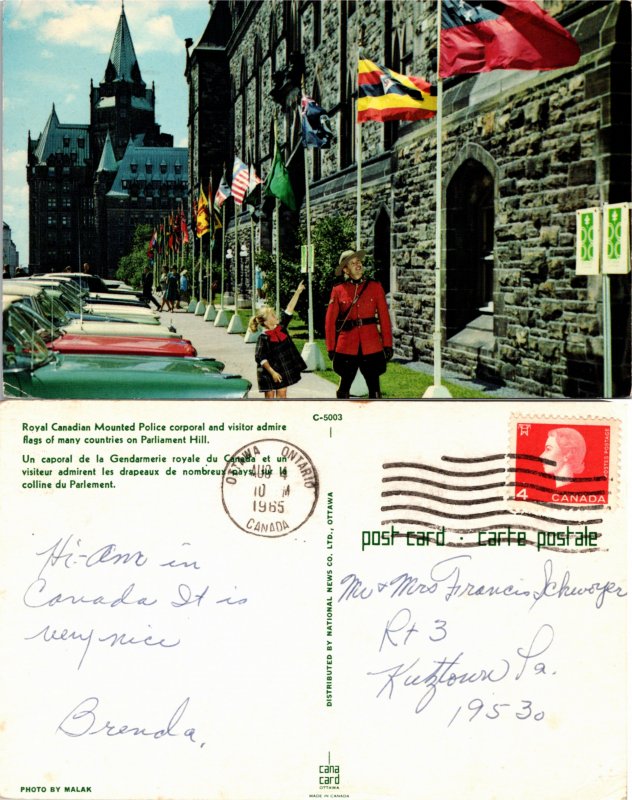 Royal Canadian Mounted Police corporal and visitor admire
flags of many countries on Parliament Hill.
Un caporal de la Gendarmerie royale du Canada et un
visiteur admirent les drapeaux de nombreux pays, sur la
colline du Parlement.
C-5003
OTTAWA ONTARIO
AUG 4
10 M
1965
CANADA
4
CANADA
POSTES POSTAGE
post card · carte postale
Hi- Am in
Canada It is
very nice
Brenda.
DISTRIBUTED BY NATIONAL NEWS CO. LTD., OTTAWA
Mr & Mrs Francis Schwoyer
Rt 3
Kutztown Pa.
19530
PHOTO BY MALAK
cana
card
OTTAWA
MADE IN CANADA